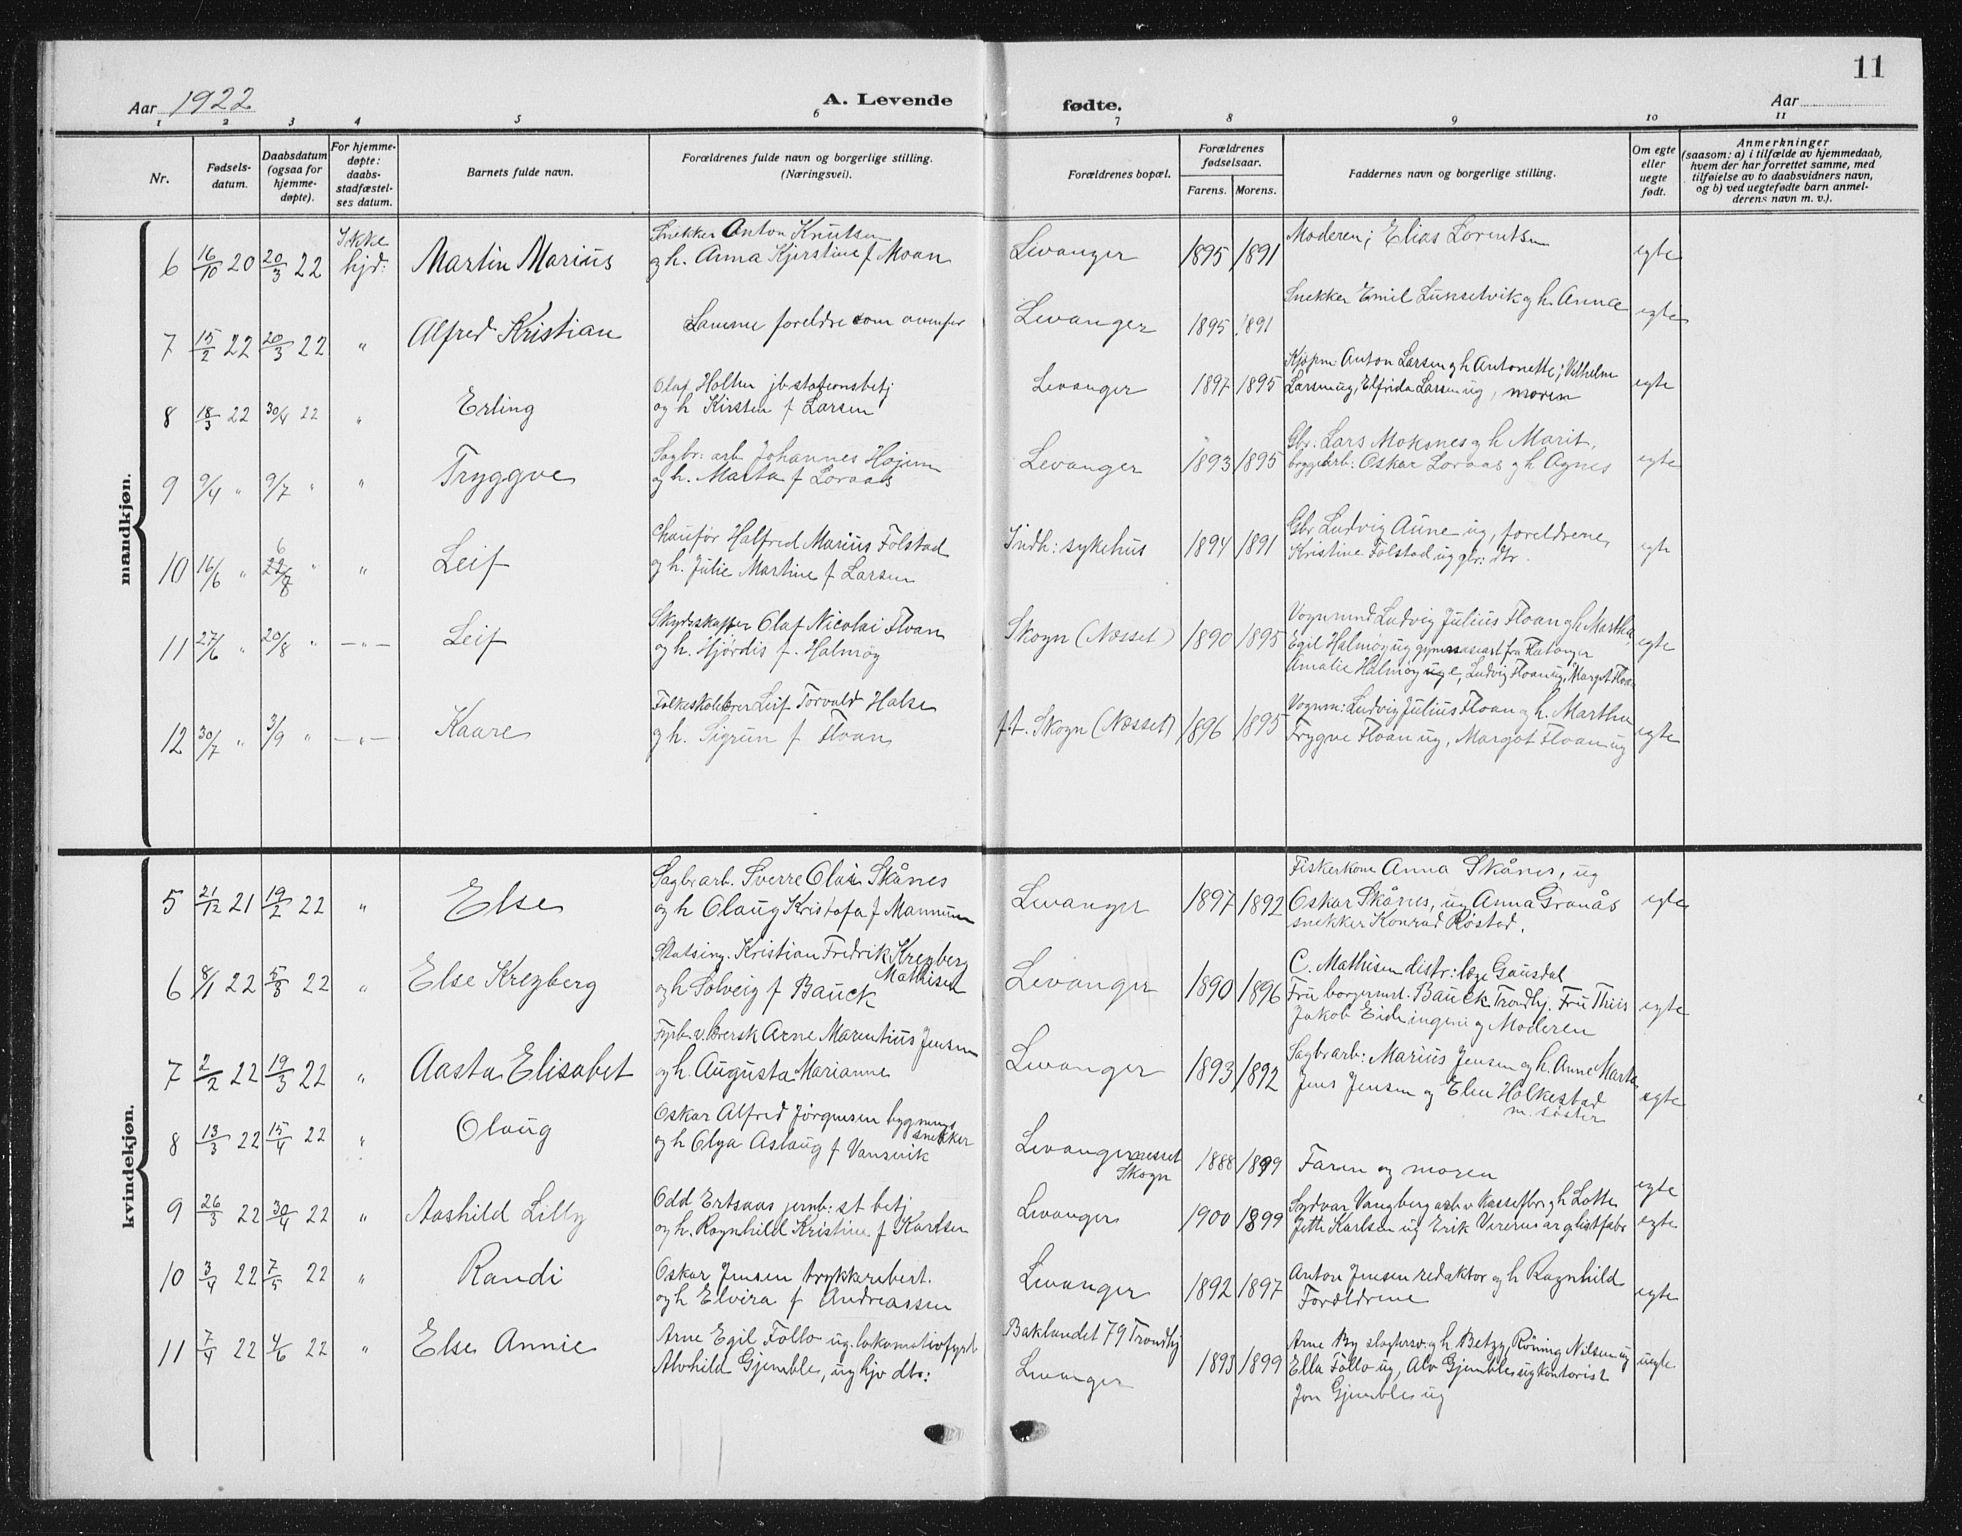 11
Aar 1922
A. Levende
fødte.
Aar
1 2 3 4 5 6 7 8 9 10 11
Nr.
Fødsels-
datum.
Daabsdatum
(ogsaa for
hjemme-
døpte).
For hjemme-
døpte:
daabs-
stadfæstel-
ses datum.
Barnets fulde navn.
Forældrenes fulde navn og borgerlige stilling.
(Næringsvei).
Forældrenes bopæl.
Forældrenes
fødselsaar.
Farens. Morens.
Faddernes navn og borgerlige stilling.
Om egte
eller
uegte
født.
Anmerkninger
(saasom: a) i tilfælde av hjemmedaab,
hvem der har forrettet samme, med
tilføielse av to daabsvidners navn,
og b) ved uegtefødte barn anmel-
derens navn m. v.).
mandkjøn.
6 16/10 20 20/3 22 Ikke hjd: Martin Marius Snekker Anton Knutsen Levanger 1895 1891 Moderen; Elias Lorentsen egte
og h. Anna Kjerstine f Moan
7 15/2 22 20/3 22 " Alfred Kristian Samme foreldre som ovenfor Levanger 1895 1891 Snekker Emil Lukselvik og h. Anna egte
8 18/3 22 30/4 22 " Erling Olaf Holten jb-stationsbetj Levanger 1897 1895 Kjøpm: Anton Larsen og h Antonette; Vilhelm egte
og h Kirsten f Larsen Larsen ug, Elfrida Larsen ug, moren
9 9/4 " 9/7 " " Tryggve Sagbr: arb Johannes Hojem Levanger 1893 1895 Gbr. Lars Moksnes og h Marit, egte
og h. Marta f Loraas bryggearb: Oskar Loraas og h Agnes
10 16/6 " 6/8 " " Leif Chaufør Halfred Marius Folstad Indh: sykehus 1894 1891 Gbr Ludvig Aune ug, foreldrene, egte
og h. Julie Martine f Larsen Kristine Folstad ug gbr: dtr.
11 27/6 " 20/8 " — " — Leif Skydsskaffer Olaf Nicolai Floan Skogn (Næsset) 1890 1895 Vognmand Ludvig Julius Floan og h Martha, egte
og h. Hjørdis f. Halmøy Egil Halmøy ug gymnasiast fra
Amalie Halmøy ug, Ludvig Floan ug, Margot Floan
12 30/7 " 3/9 " — " — Kaare Folkeskolelærer Leif Torvald Halse f.t. Skogn (Næsset) 1896 1895 Vognm: Ludvig Julius Floan og h. Martha egte
og h. Sigrun f Floan Trygve Floan ug, Margot Floan ug
kvindekjøn.
5 21/12 21 19/2 22 " Else Sagbr arb. Sverre Olai Skånes Levanger 1897 1892 Fiskerkone Anna Skånes, ug egte
og h Olaug Kristofa f Mannum Oskar Skånes, ug Anna Granås
snekker Konrad Røstad.
6 8/1 22 5/3 22 " Else Kreyberg Statsing. Kristian Fredrik Kreyberg Levanger 1890 1896 C. Mathisen distr: læge Gausdal egte
Mathisen
og h Solveig f Bauck Fru borgermst. Bauck Trondhj. Fru Thiis
Jakob Eid ingeniør Moderen
7 2/2 22 19/3 22 " Aasta Elisabet Fyrb. v. Arne Marentius Jensen Levanger 1893 1892 Sagbr arb: Marius Jensen og h. Anne Marta egte
og h. Augusta Marianne Jens Jensen og Elen Holkestad
m. søster
8 13/3 22 15/4 22 " Olaug Oskar Alfred Jörgensen bygnings Levangernæsset 1888 1899 Faren og moren egte
snekker
og h Olga Aslaug f Vansvik Skogn
9 26/3 22 30/4 22 " Aashild Lilly Odd Ertsaas jernb: st betj Levanger 1900 1899 Sydvar Vangberg arb v Vassefbr og h Lotte egte
og h. Ragnhild Kristine f Karlsen Jette Karlsen ug Erik
10 3/4 22 7/5 22 " Randi Oskar Jensen trykkeribest. Levanger 1892 1897 Anton Jensen redaktør og h Ragnhild egte
og h Elvira f Andreassen Foreldrene
11 7/4 22 4/6 22 " Else Annie Arne Egil Follo ug. lokomotivfyrb Baklandet 79 Trondhj 1893 1899 Arne By slagtersv. og h Betzy, Röning Nilsen ug uegte
Alvhild Gjemble, ug hjv dtr: Levanger Ella Follo ug, Alv Gjemble ug kontorist
Jon Gjemble ug